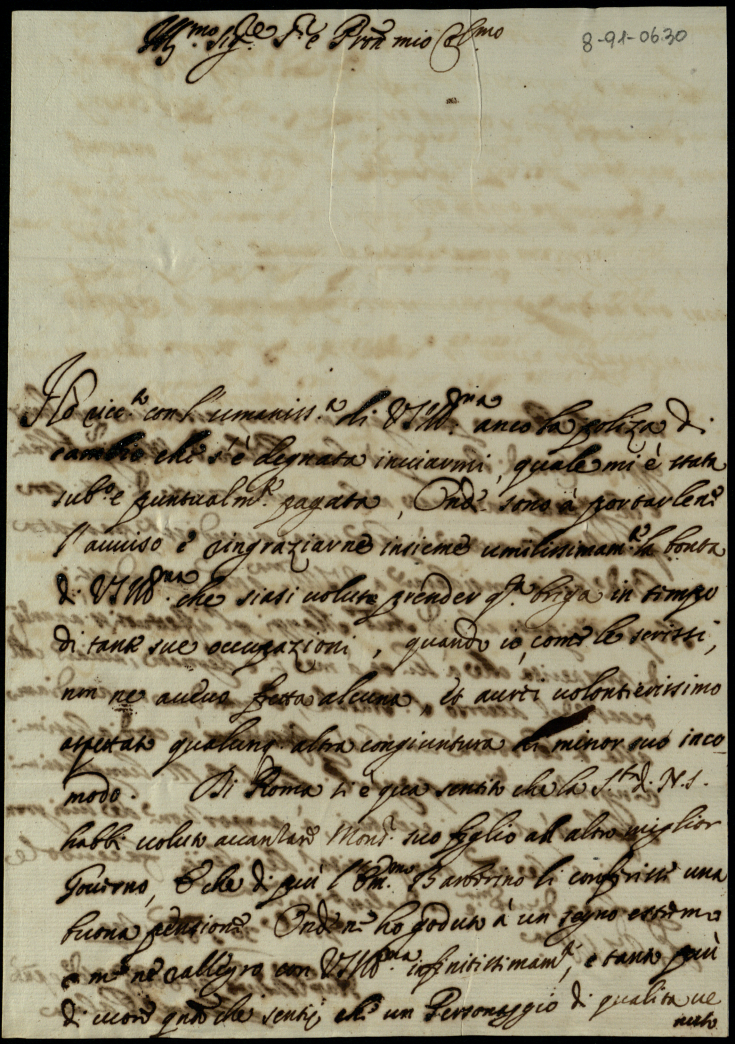 Ill.mo Sig.re S.r e Pron mio Col.mo
8-91-0630
Hò ricc.ta con l'umaniss.a di VSIll.ma anco la poliza di
cambio che s'è degnata inviarmi, quale mi è stata
sub.o e puntualm.te pagata, Onde sono à portarlene
l'avviso e ringraziarne insieme umilissimam.te la bontà
di VSIll.ma che siasi voluta prender q.sta briga in tempo
di tante sue occupazioni, quando io, come le scrissi,
non ne avevo fretta alcuna, et avrei volontierissimo
aspettato qualunq. altra congiuntura di minor suo inco
modo. Di Roma si è qua sentito che la S.tà di N.S.
habbi voluto avanzare Mons.r suo figlio ad altro miglior
Governo, e che di più l'Em.mo Barberino li conferisse una
buona pensione. Onde ne ho goduto à un segno estremo
e me ne rallegro con VSIll.ma infinitissimam.te, e tanto più
di cuore q.to che sentij che un Personaggio di qualità ve
nuto